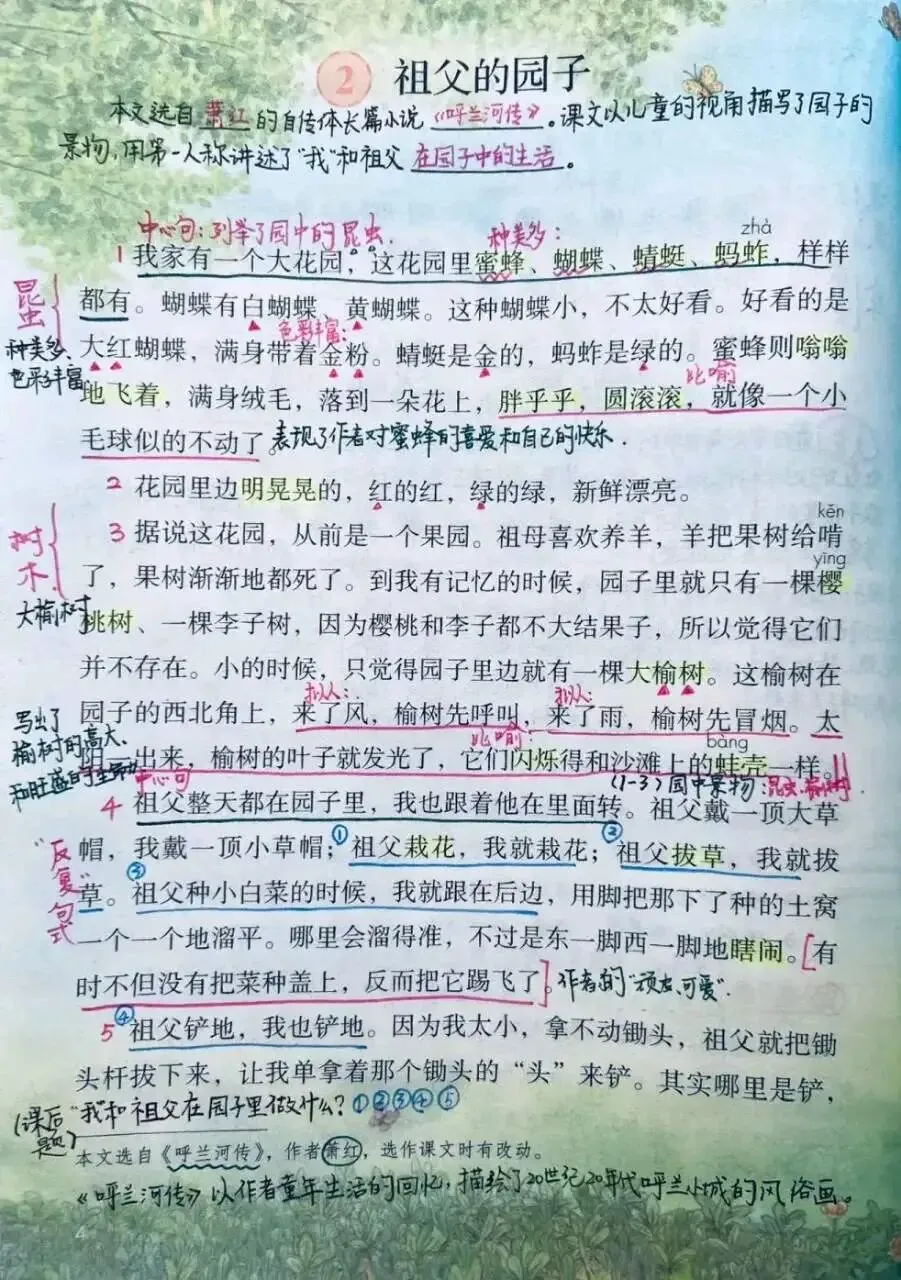 2 祖父的园子
本文选自 萧红 的自传体长篇小说 《呼兰河传》。课文以儿童的视角描写了园子的
景物,用第一人称讲述了"我"和祖父 在园子中的生活。
中心句:列举了园中的昆虫. 种类多: zhà
1 我家有一个大花园,这花园里蜜蜂、蝴蝶、蜻蜓、蚂蚱,样样
昆虫
都有。蝴蝶有白蝴蝶、黄蝴蝶。这种蝴蝶小,不太好看。好看的是
种类多、
色彩丰富:
大红蝴蝶,满身带着金粉。蜻蜓是金的,蚂蚱是绿的。蜜蜂则嗡嗡
色彩丰富
比喻
地飞着,满身绒毛,落到一朵花上,胖乎乎,圆滚滚,就像一个小
毛球似的不动了。表现了作者对蜜蜂的喜爱和自己的快乐.
2 花园里边明晃晃的,红的红,绿的绿,新鲜漂亮。
kěn
树木
3 据说这花园,从前是一个果园。祖母喜欢养羊,羊把果树给啃
yīng
了,果树渐渐地都死了。到我有记忆的时候,园子里就只有一棵樱
大榆树
桃树、一棵李子树,因为樱桃和李子都不大结果子,所以觉得它们
并不存在。小的时候,只觉得园子里边就有一棵大榆树。这榆树在
拟人: 拟人:
园子的西北角上,来了风,榆树先呼叫,来了雨,榆树先冒烟。太
写出了
榆树的高大、
和旺盛的生命
比喻: bàng
出来,榆树的叶子就发光了,它们闪烁得和沙滩上的蚌壳一样。
中心句 (1-3)园中景物:昆虫、榆树
4 祖父整天都在园子里,我也跟着他在里面转。祖父戴一顶大草
① ②
帽,我戴一顶小草帽;祖父栽花,我就栽花;祖父拔草,我就拔
"反复"句式
③
草。祖父种小白菜的时候,我就跟在后边,用脚把那下了种的土窝
一个一个地溜平。哪里会溜得准,不过是东一脚西一脚地瞎闹。[有
时不但没有把菜种盖上,反而把它踢飞了]。作者的"顽皮、可爱".
④
5 祖父铲地,我也铲地。因为我太小,拿不动锄头,祖父就把锄
头杆拔下来,让我单拿着那个锄头的“头”来铲。其实哪里是铲,
(课后题) "我"和祖父在园子里做什么?①②③④⑤
本文选自《呼兰河传》,作者萧红,选作课文时有改动。
《呼兰河传》以作者童年生活的回忆,描绘了20世纪20年代呼兰小城的风俗画。
4